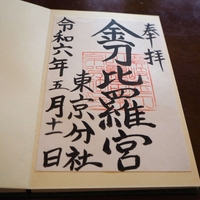 奉拝
金刀比羅宮
東京分社
令和六年五月十一日